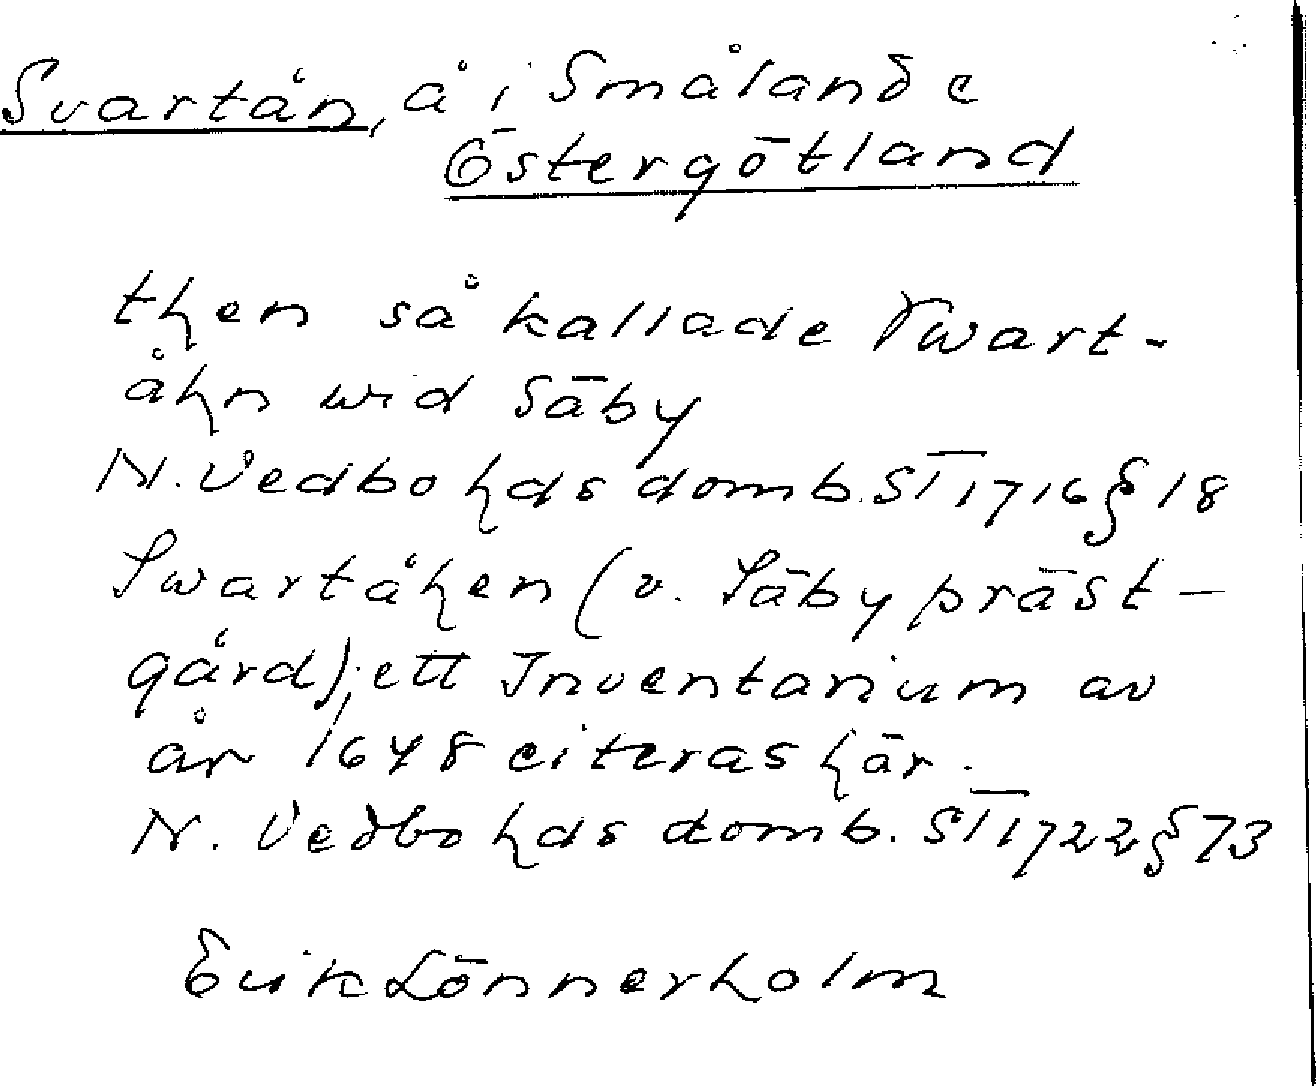 Svartån, å i Småland o
Östergötland
then så kallade Swart-
åhn wid Säby
N. Vedbo hds domb. ST 1716 § 18
Swartåhen (v. Säby präst-
gård); ett Inventarium av
år 1648 citeras här.
N. Vedbo hds domb. ST 1722 § 73
Erik Lönnerholm